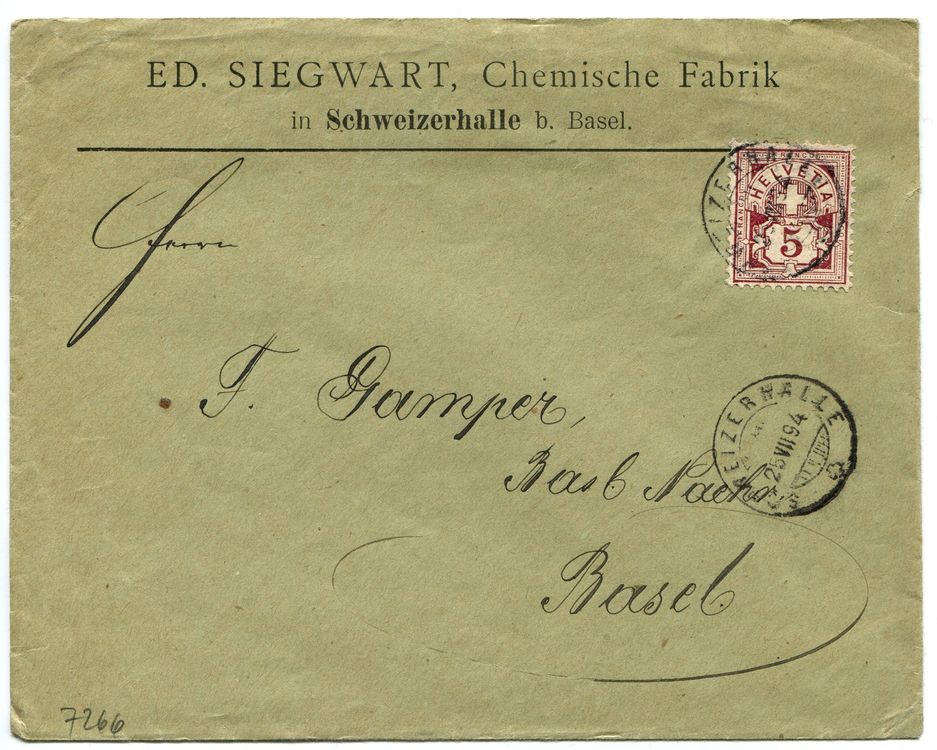 ED. SIEGWART, Chemische Fabrik
in Schweizerhalle b. Basel.
HELVETIA
5
Herrn
F. Gamper,
Basl. Nachr.
Basel
SCHWEIZERHALLE
25 VII 94
7266